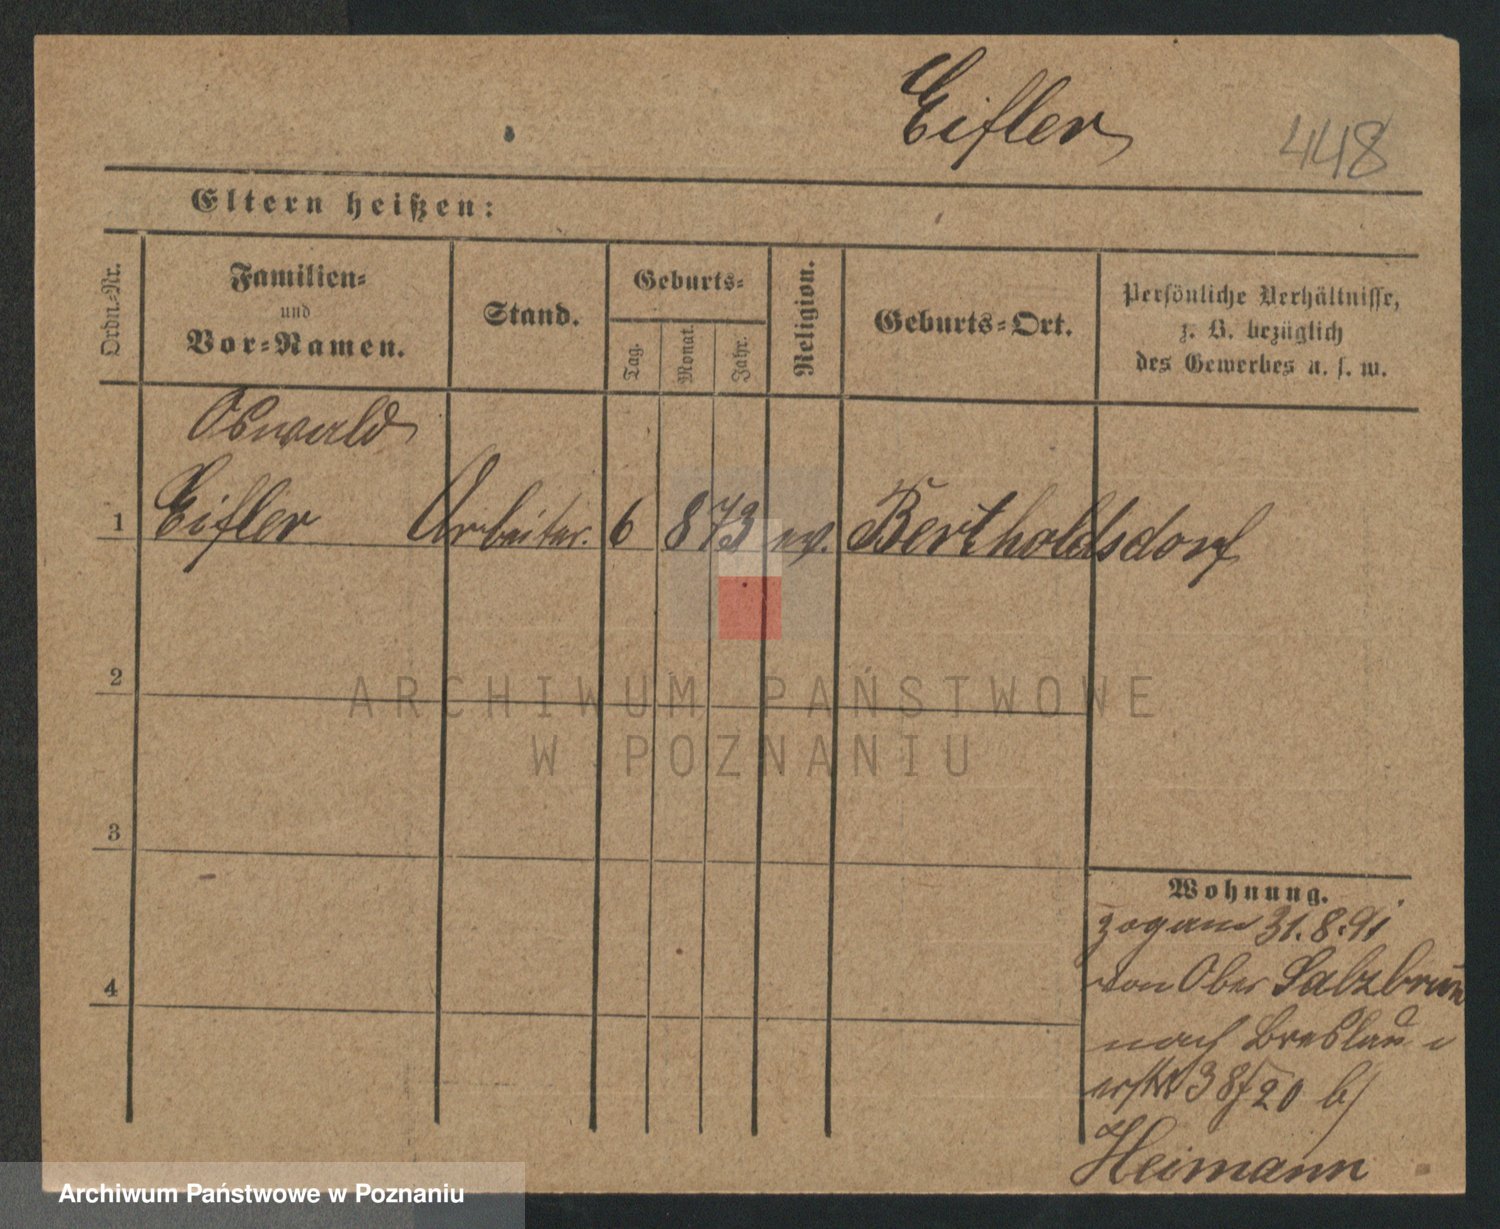 Eifler
448
Eltern heißen:
Ordn.=Nr.
Familien=
und
Vor=Namen.
Stand.
Geburts=
Tag.
Monat.
Jahr.
Religion.
Geburts=Ort.
Persönliche Verhältnisse,
z. B. bezüglich
des Gewerbes u. s. w.
Oswald
1 Eifler Arbeiter. 6 8 73 ev. Bertholdsdorf
2
ARCHIWUM PAŃSTWOWE
W POZNANIU
3
Wohnung.
zog am 31.8.91
von Ober Salzbrunn
4
nach Breslau
38/20 b/
Heimann
Archiwum Państwowe w Poznaniu